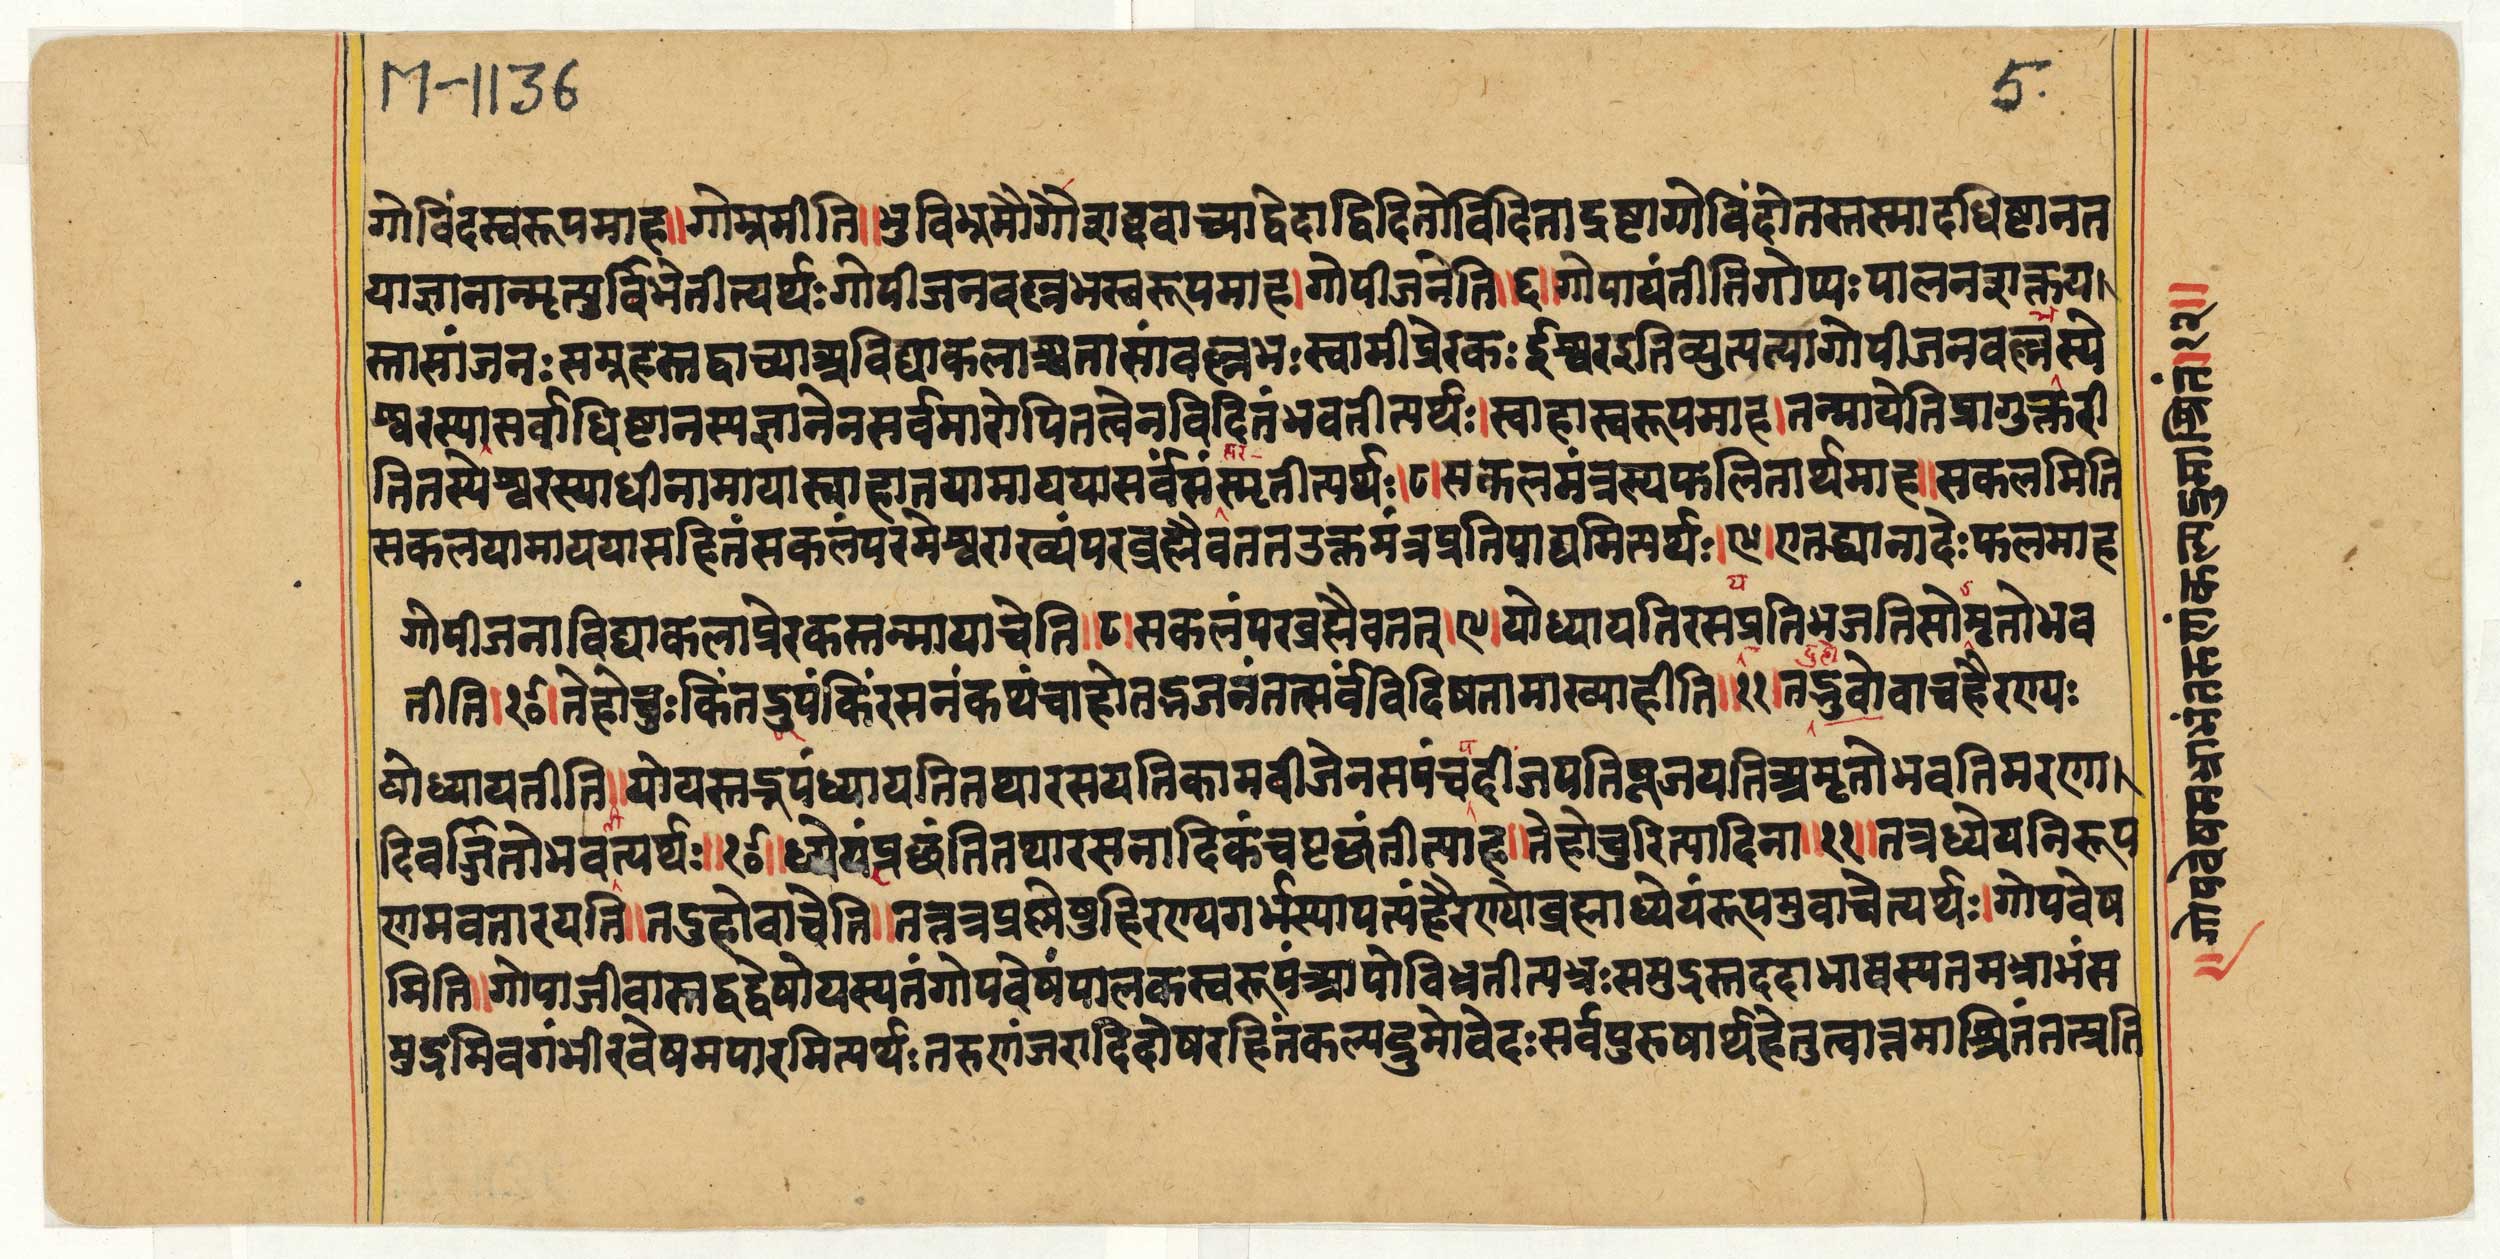 M-1136
5.
गोविंदस्वरूपमाह॥गोभूमीति॥भुविभूमौगौशब्दवाच्याद्वेदाद्विदितोविदिताद्रष्टागोविंदोतस्तस्मादधिष्टानत
याज्ञानान्मृत्युर्विभेतीत्यर्थः गोपीजनवल्लभस्वरूपमाह।गोपीजनेति॥६॥गोपायंतीतिगोप्यः पालनशक्तय।
स्तासांजनः समूहस्तद्वाच्याअविद्याकलाश्चतासांवल्लभः स्वामीप्रेरकः ईश्वरइतिव्युत्पत्यागोपीजनवल्लभस्ये
श्वरस्यासर्वाधिष्टानस्यज्ञानेनसर्वमारोपितत्वेनविदितंभवतीत्यर्थः।स्वाहास्वरूपमाह।तन्मायेतिप्रागुक्तरी
तितस्येश्वरस्याधीनामायास्वाहातयामाययासर्वंसंसरतीत्यर्थः।८।सकलमंत्रस्यफलितार्थमाह॥सकलमिति
सकलयामाययासहितंसकलंपरमेश्वराख्यंपरब्रह्मैवतत्तउक्तमंत्रप्रतिपाद्यमित्यर्थः।९।एतद्ध्यानादेः फलमाह
गोपीजनाविद्याकलाप्रेरकस्तन्मायाचेति॥८।सकलंपरब्रह्मैवतत्।९।योध्यायतिरसयतिभजतिसोमृतोभव
तीति।१०।तेहोचुः किंतद्रूपंकिंरसनंकथंचाहोतद्भजनंतत्सर्वंविविदिषतामाख्याहीति॥११।तदुहोवाचहैरण्यः
योध्यायतीति॥योयस्तद्रूपंध्यायतितथारसयतिकामबीजेनसपंचपदींजपतिपूजयतिअमृतोभवतिमरणा।
दिवर्जितोभवतीत्यर्थः॥१०॥ध्येयंपृछंतितथारसनादिकंचपृछंतीत्याह॥तेहोचुरित्यादिना॥११॥तत्रध्येयनिरूप
णमवतारयति॥तदुहोवाचेति॥तत्तत्रप्रश्नेषुहिरण्यगर्भस्यापत्यंहैरण्योब्रह्माध्येयंरूपमुवाचेत्यर्थः।गोपवेष
मिति॥गोपाजीवास्तद्वद्वेषोयस्यतंगोपवेषंपालकस्वरूपंआपोविभ्रतीत्यभ्रः समुद्रस्तददाभायस्यतमभ्राभंस
मुद्रमिवगंभीरवेषमपारमित्यर्थः तरुणंजरादिदोषरहितंकल्पद्रुमोवेदः सर्वपुरुषार्थहेतुत्वात्तमाश्रितंतत्प्रति
॥गोपवेषमभ्राभंतरुणंकल्पद्रुमाश्रितं॥१२॥